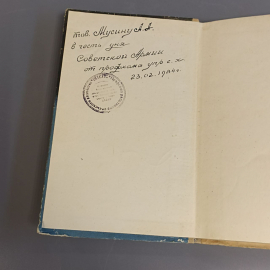 тов. Мусину А.А.
в честь дня
Советской Армии
от профкома упр с.х.
23.02.1984г